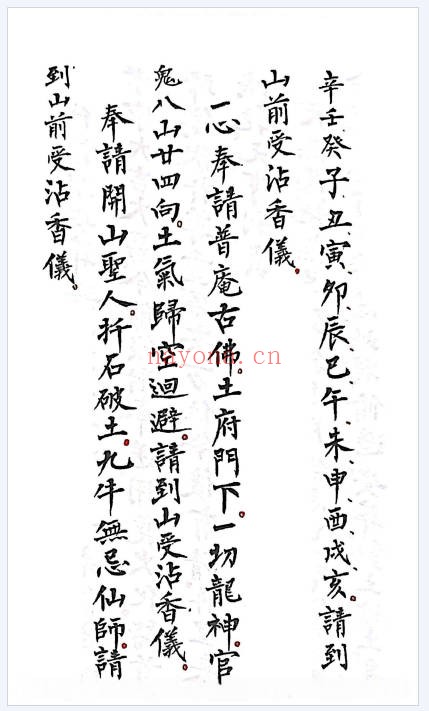 辛壬癸子丑寅卯辰巳午未申酉戌亥。請到
山前受沾香儀。
一心奉請普庵古佛。土府門下。一切龍神官
鬼八山廿四向。土氣歸空迴避。請到山受沾香儀。
奉請開山聖人。扦石破土。九牛無忌仙師。請
到山前受沾香儀。
nayona.cn